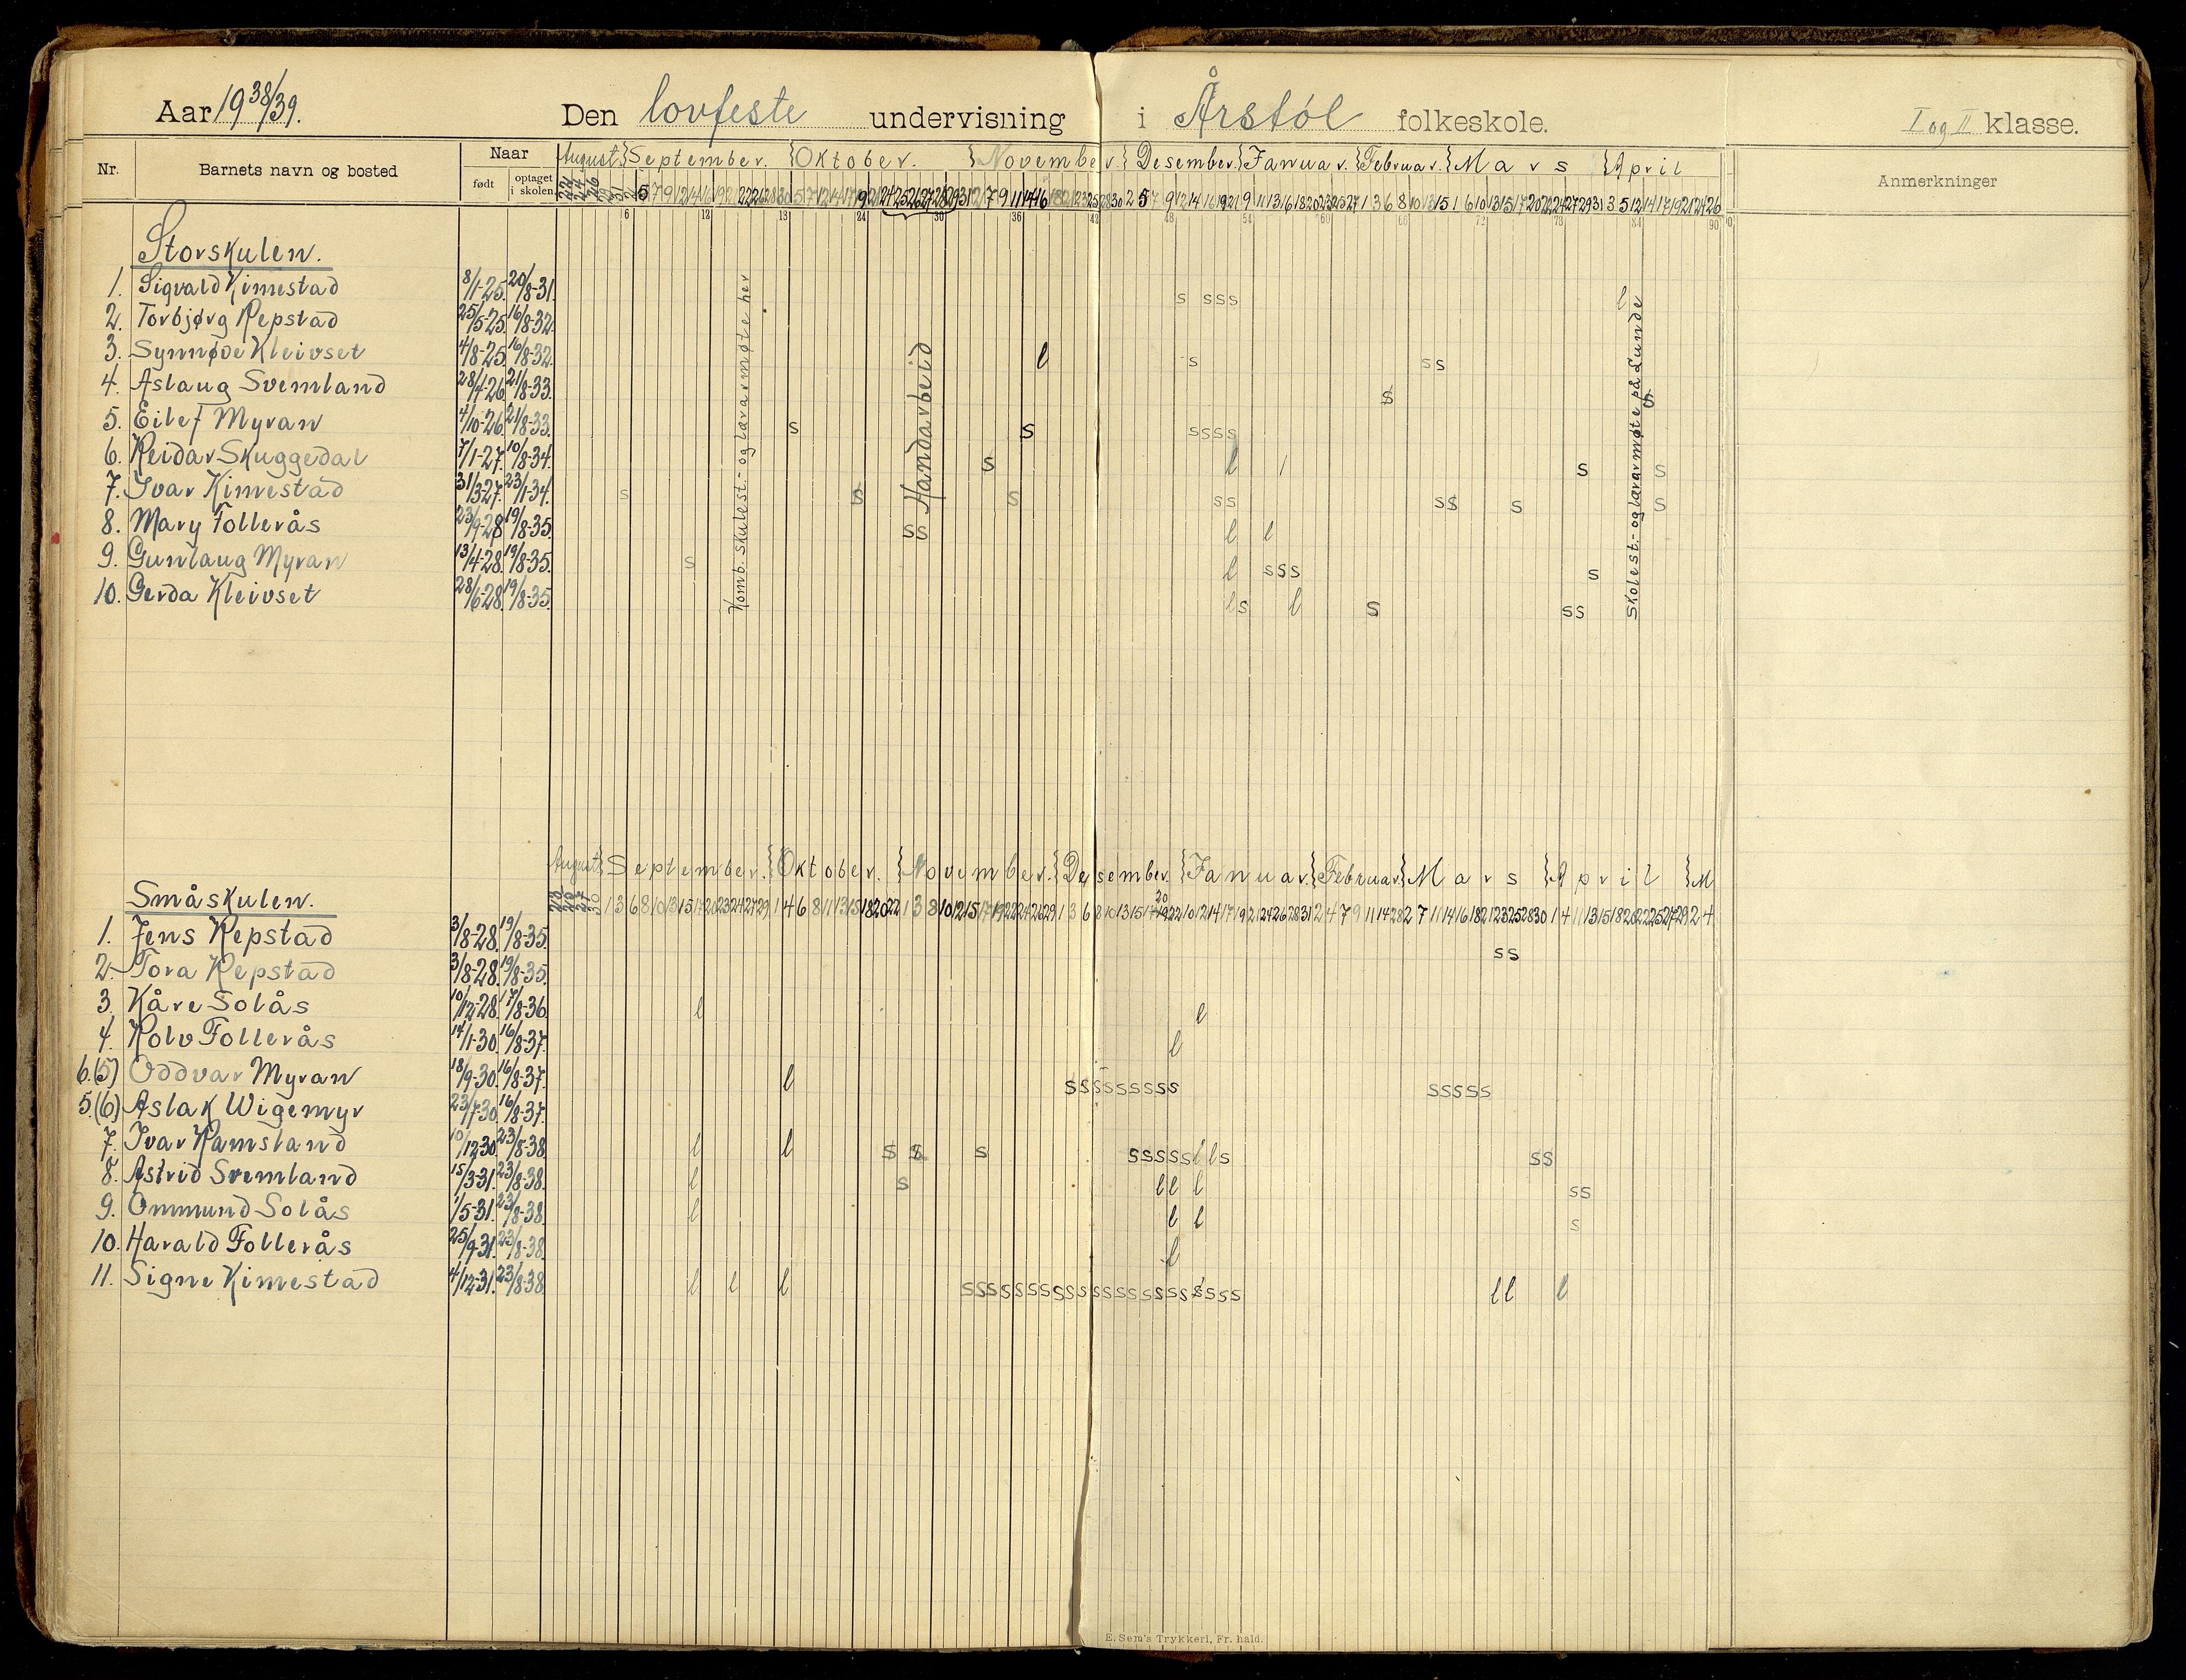 Aar 1938/39. Den lovfeste undervisning i Årstøl folkeskole. I og II klasse.
Nr. Barnets navn og bosted Naar født optaget i skolen August September. Oktober. November. Desember. Januar. Februar. Mars April Anmerkninger
6 12 13 24 30 36 42 48 54 60 66 72 78 84 90
Storskulen.
1. Sigvald Kimestad 8/1-25. 20/8-31. s s s s l
2. Torbjørg Repstad 25/5-25. 16/8-32.
3. Synnøve Kleivset 4/8-25. 16/8-32. l s s s
4. Aslaug Svemland 28/4-26. 21/8-33. s s
5. Eilef Myran 4/10-26. 21/8-33. s s s s s s
6. Reidar Skuggedal 7/1-27. 10/8-34. s l l s s
7. Ivar Kimestad 31/3-27. 23/1-34. s s s s s s s s s
8. Mary Follerås 23/9-28 19/8-35. s s l l
9. Gunlaug Myran 13/4-28. 19/8-35. s l s s s s
10. Gerda Kleivset 28/6-28. 19/8-35. l s l s s s
Komb. skulest.- og lærarmøte her
Handarbeid
Skolest.- og lærarmøte på Lunde
August September. Oktober. November. Desember. Januar. Februar. Mars April M
Småskulen.
1. Jens Repstad 3/8-28. 19/8-35. s s
2. Tora Repstad 3/8-28. 19/8-35.
3. Kåre Solås 10/12-28. 17/8-36. l l
4. Rolv Follerås 14/1-30. 16/8-37. l
6.(5) Oddvar Myran 18/9-30. 16/8-37. l s s s s s s s s s s s s s s
5.(6) Aslak Wigemyr 23/7-30. 16/8-37.
7. Ivar Ramsland 10/12-30. 23/8-38. l l s s s s s s s s l l s s s
8. Astrid Svemland 15/3-31. 23/8-38. l s l l l s s
9. Ommund Solås 1/5-31. 23/8-38. l l l s
10. Harald Follerås 25/9-31. 23/8-38. l
11. Signe Kimestad 4/12-31. 23/8-38. l l l s s s s s s s s s s s s s s s s s s s s s s l l l
E. Sem's Trykkeri, Fr. hald.